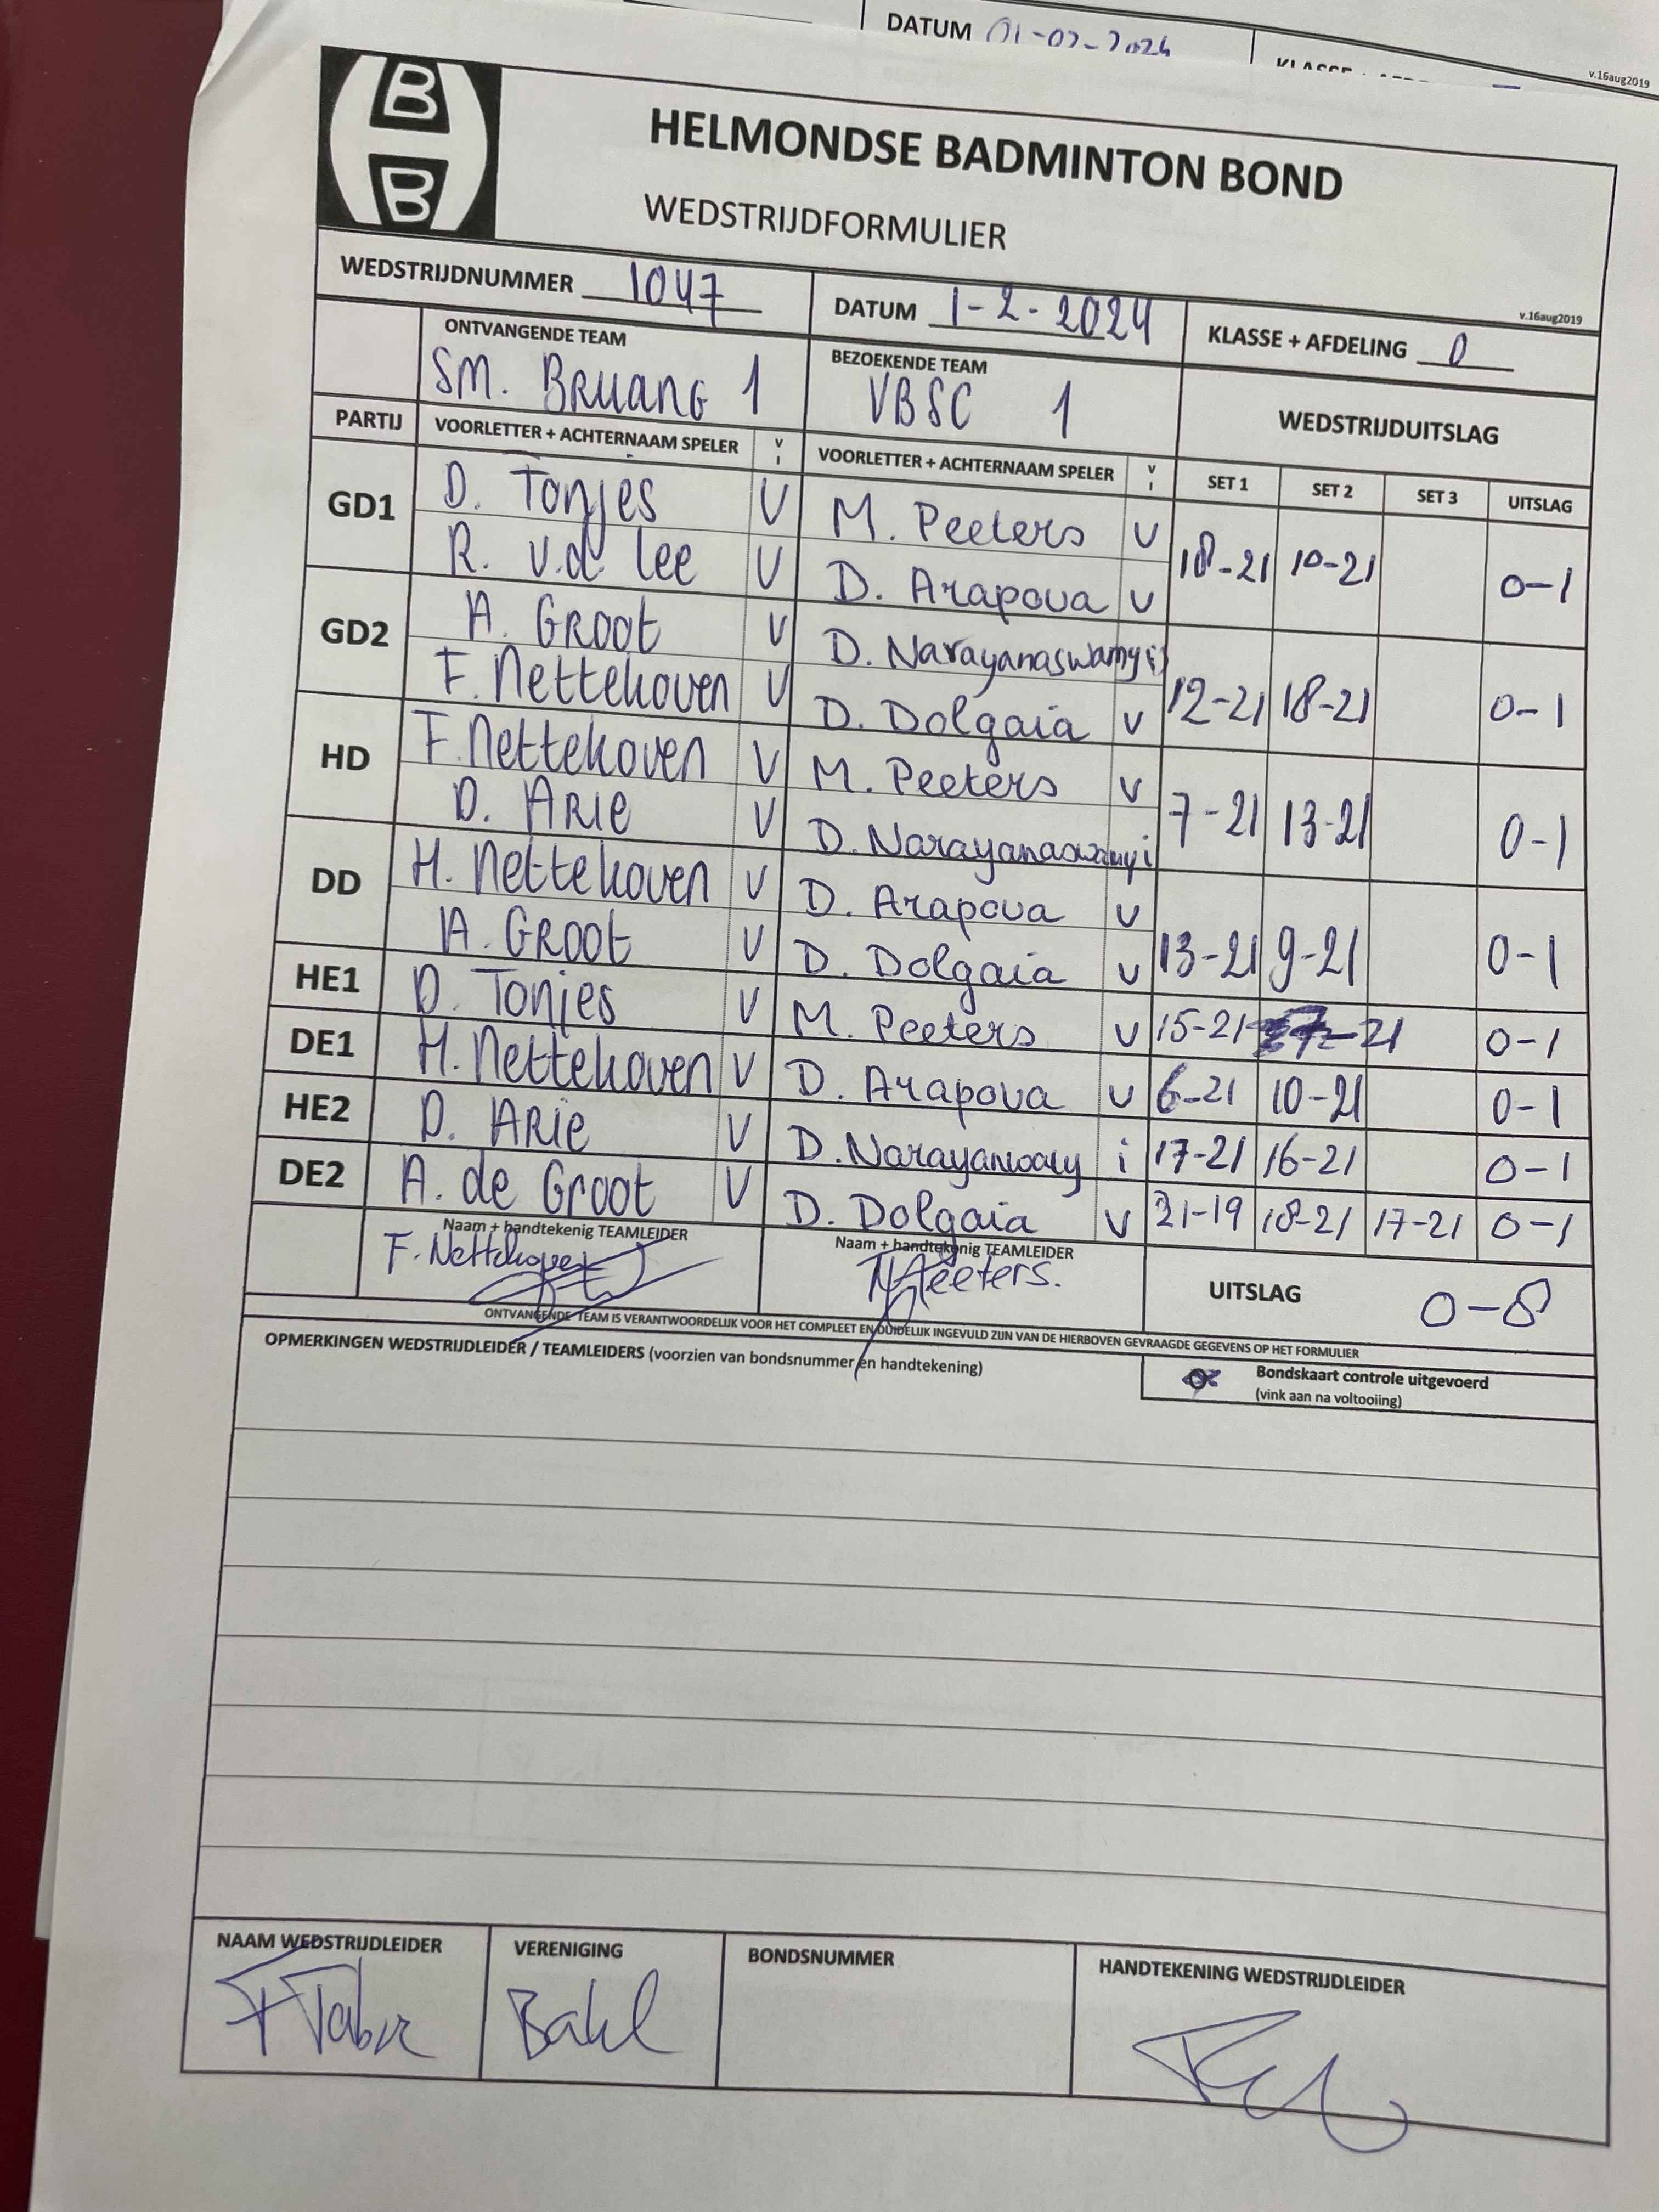 DATUM 01-02-2024
v.16aug2019
B
B
HELMONDSE BADMINTON BOND
WEDSTRIJDFORMULIER
WEDSTRIJDNUMMER 1047 DATUM 1-2-2024 KLASSE + AFDELING 0
v.16aug2019
ONTVANGENDE TEAM BEZOEKENDE TEAM
SM. BRUANG 1 VBSC 1 WEDSTRIJDUITSLAG
PARTIJ VOORLETTER + ACHTERNAAM SPELER V I VOORLETTER + ACHTERNAAM SPELER V I SET 1 SET 2 SET 3 UITSLAG
GD1 D. Tonjes V M. Peeters V 18-21 10-21 0-1
R. v.d. Lee V D. Arapova V
GD2 A. GROOT V D. Narayanaswamy i 12-21 18-21 0-1
F. Nettekoven V D. Dolgaia V
HD F. Nettekoven V M. Peeters V 7-21 13-21 0-1
D. ARIE V D. Narayanaswamy i
DD H. Nettekoven V D. Arapova V 13-21 9-21 0-1
A. GROOT V D. Dolgaia V
HE1 D. Tonjes V M. Peeters V 15-21 -21 0-1
DE1 H. Nettekoven V D. Arapova V 6-21 10-21 0-1
HE2 D. ARIE V D. i 17-21 16-21 0-1
DE2 A. de Groot V D. Dolgaia V 21-19 18-21 17-21 0-1
Naam + handtekenig TEAMLEIDER Naam + handtekenig TEAMLEIDER
F. Nettekoven Peeters. UITSLAG 0-8
ONTVANGENDE TEAM IS VERANTWOORDELIJK VOOR HET COMPLEET EN DUIDELIJK INGEVULD ZIJN VAN DE HIERBOVEN GEVRAAGDE GEGEVENS OP HET FORMULIER
OPMERKINGEN WEDSTRIJDLEIDER / TEAMLEIDERS (voorzien van bondsnummer en handtekening)
Bondskaart controle uitgevoerd
(vink aan na voltooiing)
NAAM WEDSTRIJDLEIDER VERENIGING BONDSNUMMER HANDTEKENING WEDSTRIJDLEIDER
Bakel